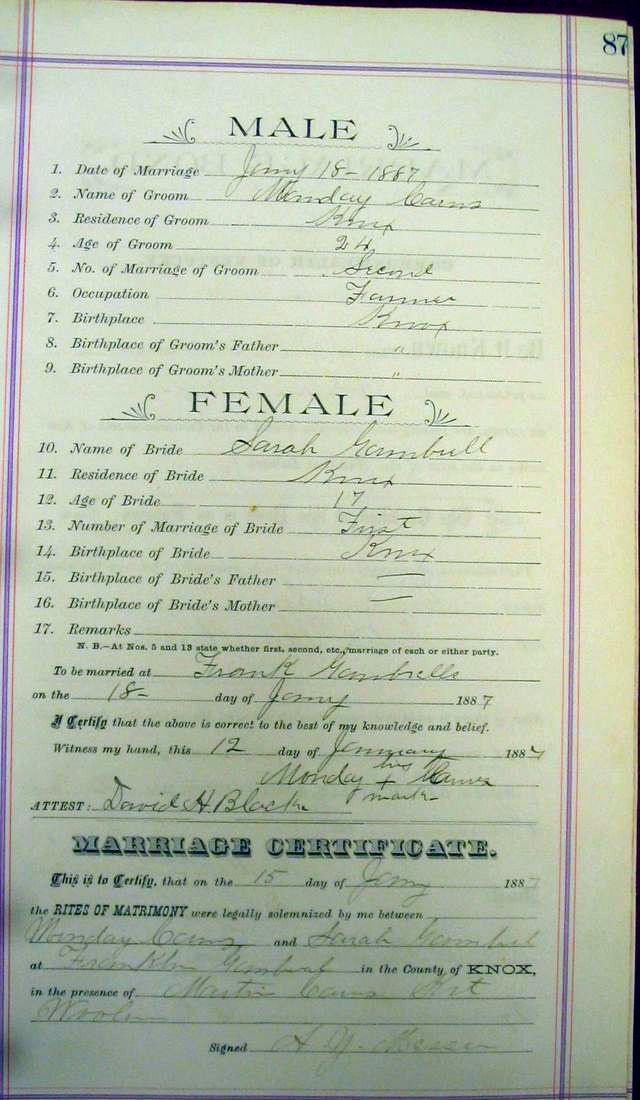 87
MALE
1. Date of Marriage Jany 18 - 1887
2. Name of Groom Monday Carns
3. Residence of Groom Knox
4. Age of Groom 24
5. No. of Marriage of Groom Second
6. Occupation Farmer
7. Birthplace Knox
8. Birthplace of Groom's Father "
9. Birthplace of Groom's Mother "
FEMALE
10. Name of Bride Sarah Gambrell
11. Residence of Bride Knox
12. Age of Bride 17
13. Number of Marriage of Bride First
14. Birthplace of Bride Knox
15. Birthplace of Bride's Father —
16. Birthplace of Bride's Mother —
17. Remarks
N. B.—At Nos. 5 and 13 state whether first, second, etc., marriage of each or either party.
To be married at Frank Gambrells
on the 18- day of Jany 1887
I Certify that the above is correct to the best of my knowledge and belief.
Witness my hand, this 12 day of January 1887
Monday his x mark Carns
ATTEST: David H Black
MARRIAGE CERTIFICATE.
This is to Certify, that on the 15 day of Jany 1887
the RITES OF MATRIMONY were legally solemnized by me between
Monday Carns and Sarah Gambrel
at Franklin Gambral in the County of KNOX,
in the presence of Martin Carns
Signed